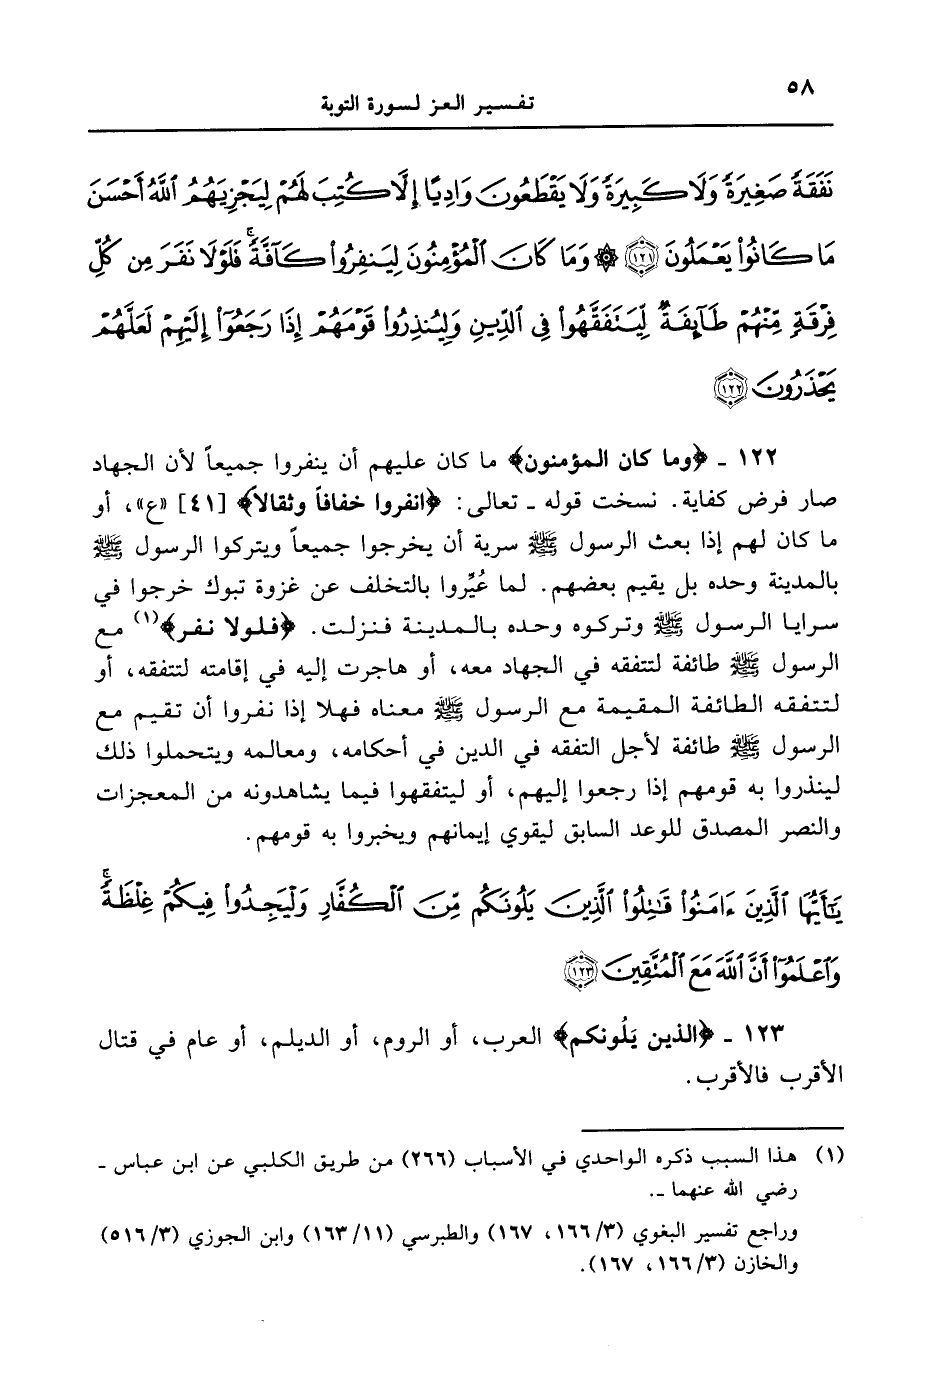 ٥٨
تفسير العز لسورة التوبة
نَفَقَةً صَغِيرَةً وَلَا كَبِيرَةً وَلَا يَقْطَعُونَ وَادِيًا إِلَّا كُتِبَ لَهُمْ لِيَجْزِيَهُمُ ٱللَّهُ أَحْسَنَ
مَا كَانُوا۟ يَعْمَلُونَ ﴿١٢١﴾ ۞ وَمَا كَانَ ٱلْمُؤْمِنُونَ لِيَنفِرُوا۟ كَآفَّةً ۚ فَلَوْلَا نَفَرَ مِن كُلِّ
فِرْقَةٍ مِّنْهُمْ طَآئِفَةٌ لِّيَتَفَقَّهُوا۟ فِى ٱلدِّينِ وَلِيُنذِرُوا۟ قَوْمَهُمْ إِذَا رَجَعُوٓا۟ إِلَيْهِمْ لَعَلَّهُمْ
يَحْذَرُونَ ﴿١٢٢﴾
١٢٢ ـ ﴿وما كان المؤمنون﴾ ما كان عليهم أن ينفروا جميعاً لأن الجهاد
صار فرض كفاية. نسخت قوله ـ تعالى: ﴿انفروا خفافاً وثقالاً﴾ [٤١] «ع»، أو
ما كان لهم إذا بعث الرسول ﷺ سرية أن يخرجوا جميعاً ويتركوا الرسول ﷺ
بالمدينة وحده بل يقيم بعضهم. لما عُيِّروا بالتخلف عن غزوة تبوك خرجوا في
سرايا الرسول ﷺ وتركوه وحده بالمدينة فنزلت. ﴿فلولا نفر﴾(١) مع
الرسول ﷺ طائفة لتتفقه في الجهاد معه، أو هاجرت إليه في إقامته لتتفقه، أو
لتتفقه الطائفة المقيمة مع الرسول ﷺ معناه فهلا إذا نفروا أن تقيم مع
الرسول ﷺ طائفة لأجل التفقه في الدين في أحكامه، ومعالمه ويتحملوا ذلك
لينذروا به قومهم إذا رجعوا إليهم، أو ليتفقهوا فيما يشاهدونه من المعجزات
والنصر المصدق للوعد السابق ليقوي إيمانهم ويخبروا به قومهم.
يَٰٓأَيُّهَا ٱلَّذِينَ ءَامَنُوا۟ قَٰتِلُوا۟ ٱلَّذِينَ يَلُونَكُم مِّنَ ٱلْكُفَّارِ وَلْيَجِدُوا۟ فِيكُمْ غِلْظَةً ۚ
وَٱعْلَمُوٓا۟ أَنَّ ٱللَّهَ مَعَ ٱلْمُتَّقِينَ ﴿١٢٣﴾
١٢٣ ـ ﴿الذين يَلُونكم﴾ العرب، أو الروم، أو الديلم، أو عام في قتال
الأقرب فالأقرب.
(١) هذا السبب ذكره الواحدي في الأسباب (٢٦٦) من طريق الكلبي عن ابن عباس ـ
رضي الله عنهما ـ.
وراجع تفسير البغوي (٣/١٦٦، ١٦٧) والطبرسي (١١/١٦٣) وابن الجوزي (٣/٥١٦)
والخازن (٣/١٦٦، ١٦٧).